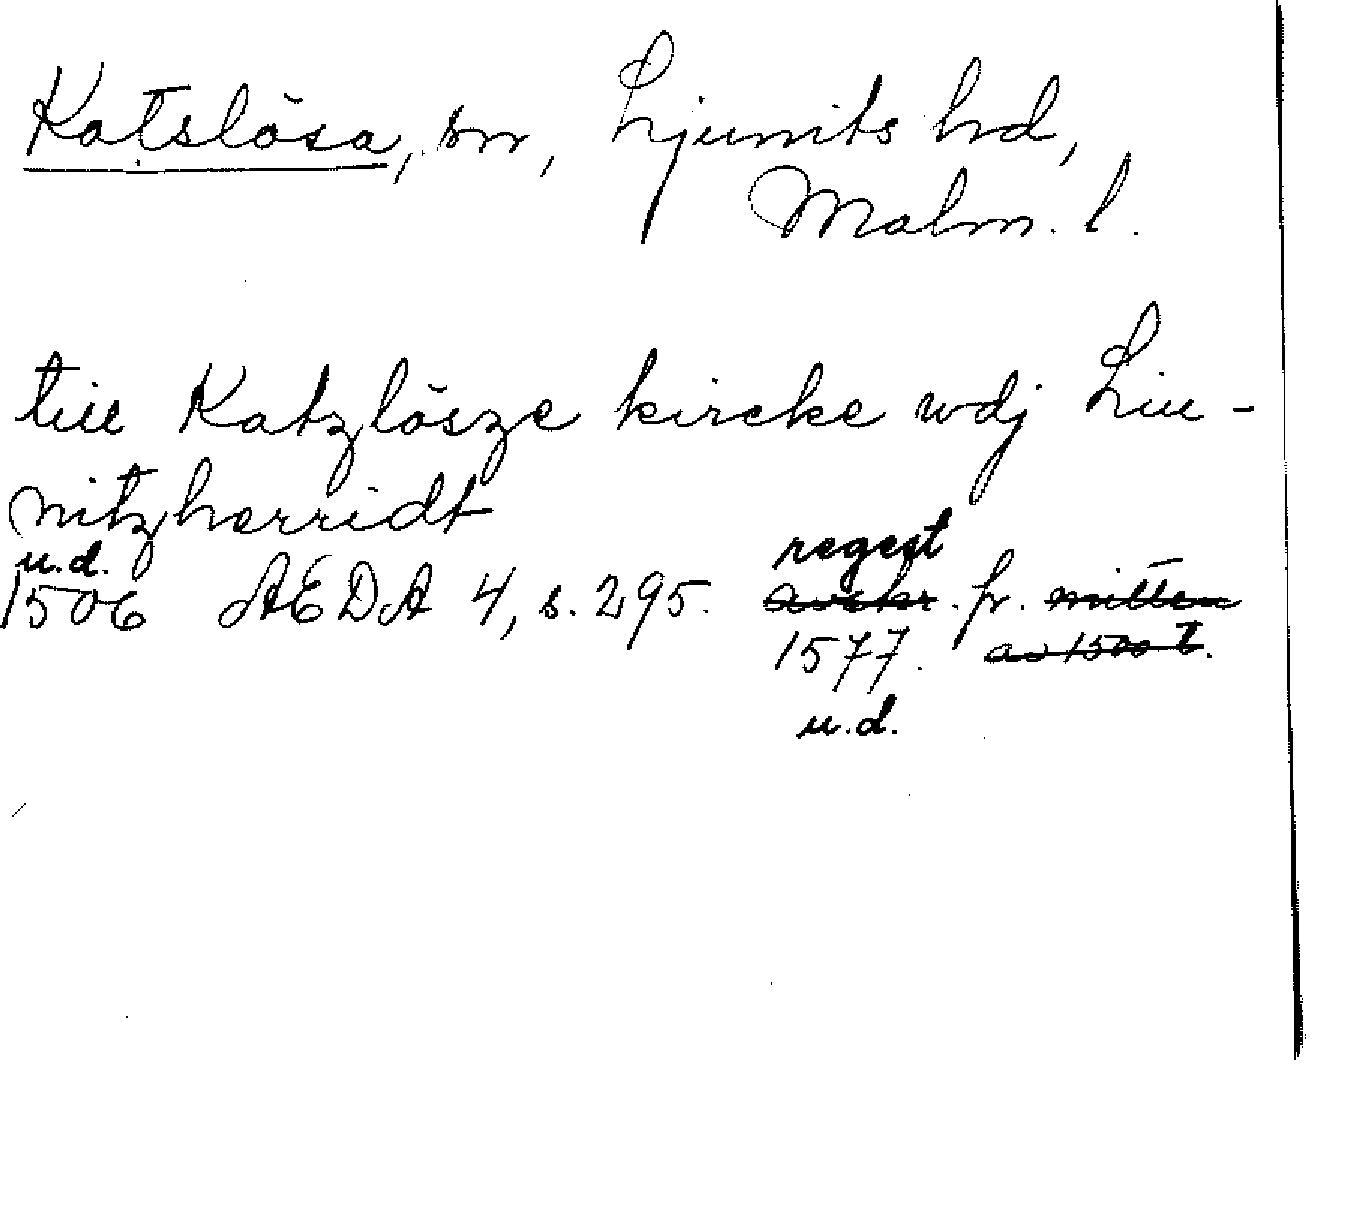 Katslösa, sn, Ljunits hd,
Malm. l.
till Katzlösze kircke wdj Liu-
nitzherridt
u.d.
regest
1506 AEDA 4, s. 295. avskr. fr. mitten
1577. av 1500 t.
u.d.